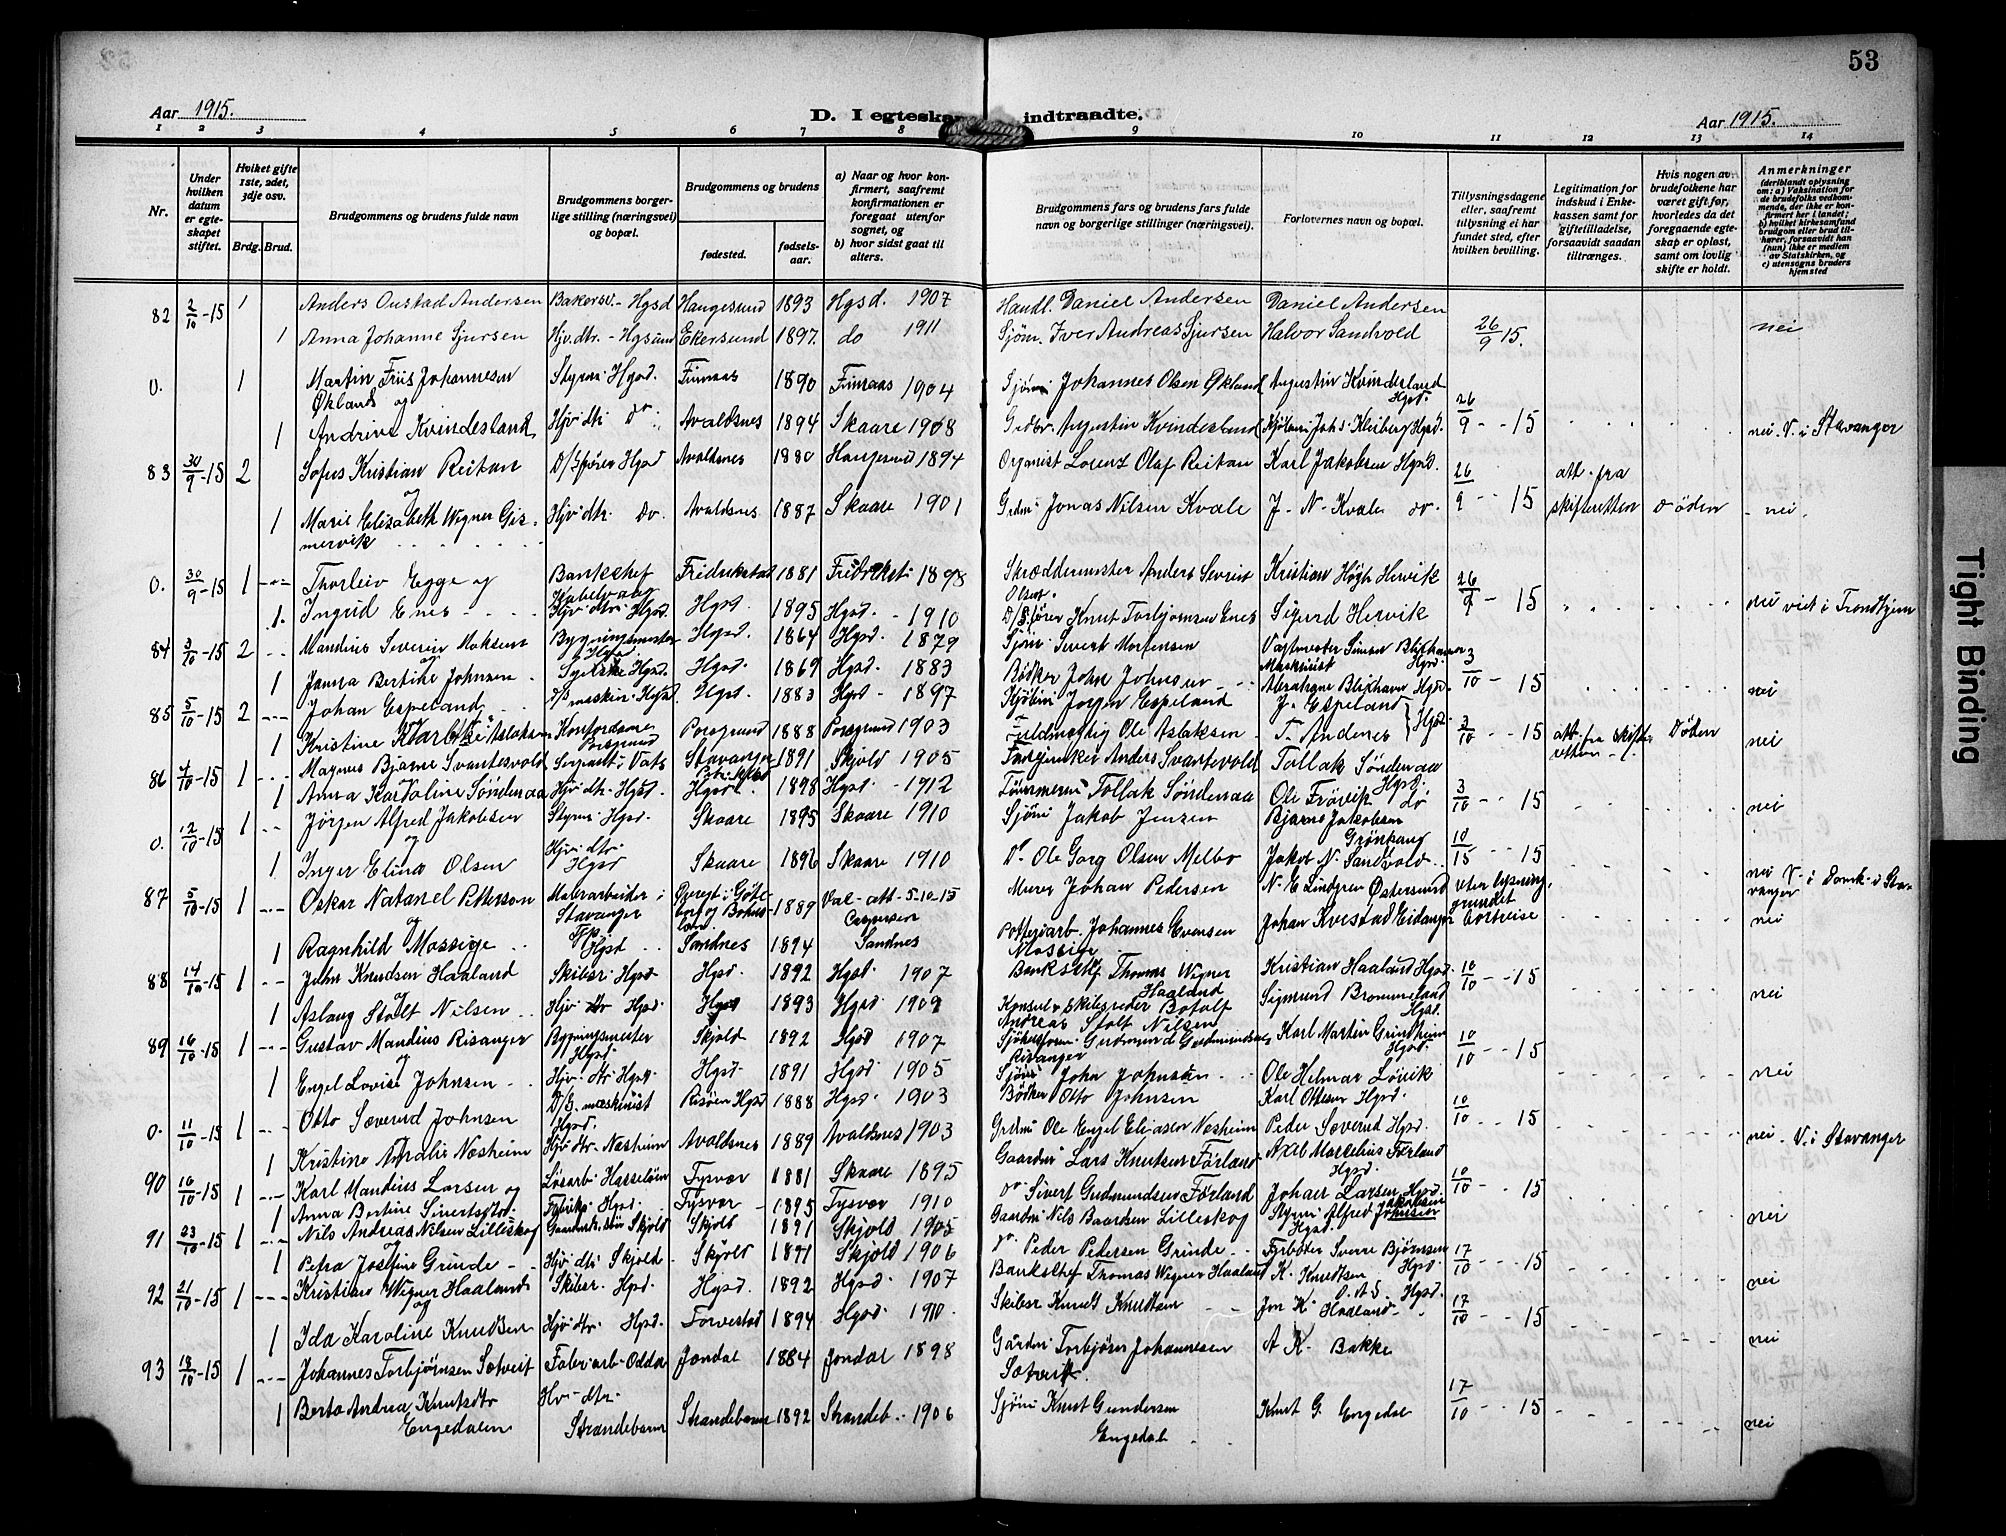 53
Aar 1915.
D. I egteskab indtraadte.
Aar 1915.
1 2 3 4 5 6 7 8 9 10 11 12 13 14
Nr.
Under hvilken datum er egteskapet stiftet.
Hvilket gifte 1ste, 2det, 3dje osv.
Brdg. Brud.
Brudgommens og brudens fulde navn
Brudgommens borgerlige stilling (næringsvei) og bopæl.
Brudgommens og brudens
fødested.
fødselsaar.
a) Naar og hvor konfirmert, saafremt konfirmationen er foregaat utenfor sognet, og
b) hvor sidst gaat til alters.
Brudgommens fars og brudens fars fulde navn og borgerlige stillinger (næringsvei).
Forlovernes navn og bopæl.
Tillysningsdagene eller, saafremt tillysning ei har fundet sted, efter hvilken bevilling.
Legitimation for indskud i Enkekassen samt for giftetilladelse, forsaavidt saadan tiltrænges.
Hvis nogen av brudefolkene har været gift før, hvorledes da det foregaaende egteskap er opløst, samt om lovlig skifte er holdt.
Anmerkninger
(deriblandt oplysning om: a) Vaksination for de brudefolks vedkommende, der ikke er konfirmert her i landet; b) hvilket kirkesamfund brudgom eller brud tilhører, forsaavidt han (hun) ikke er medlem av Statskirken, og c) utensogns bruders hjemsted
82 2/10-15 1 Anders Onstad Andersen Bakersv.- Hgsd Haugesund 1893 Hgsd. 1907 Handl. Daniel Andersen Daniel Andersen
1 Anna Johanne Sjursen Hjv. dtr. - Hgsund Ekersund 1897. do 1911 Sjøm. Iver Andreas Sjursen Halvor Sandvold 26/9 15. nei
0. 1 Martin Friis Johannesen Styrm. Hgsd. Finnaas 1890 Finnaas 1904 Sjøm. Johannes Olsen Økland Augustin Kvindesland Hgsd.
Økland og
1 Andrive Kvindesland Hjv. dtr. Do. Avaldsnes 1894 Skaare 1908 Grdbr. Augustin Kvindesland 26/9 - - 15 nei. V. i Stavanger
83 30/9-15 2 Sofus Kristian Reitan D/S fører Hgsd Avaldsnes 1880 Haugesund 1894 Organist Lorenz Olaf Reitan Karl Jakobsen Hgsd. att. fra
og
1 Marie Elizabeth Wigner Gismervik Hjv. dtr. Do. Avaldsnes 1887 Skaare 1901 Grdm. Jonas Nilsen Kvale J. N. Kvale do. 26/9 - - 15 skifteretten Døden - nei.
0. 30/9-15 1 Thorleiv Egge og Bankchef Fredrikstad 1881 Fredrikst. 1898 Skræddermester Anders Severin Olsen Kristian Høgh Hervik
1. Ingrid Enes Hjv. dtr. Hgsd. Hgsd. 1895 Hgsd. - 1910 D/S. fører Knut Torbjørnsen Enes Sigurd Hervik 26/9 - 15 nei viet i Trondhjem
84 3/10-15 2 Mandius Severin Maksen Bygningsmester Hgsd. Hgsd. 1864 Hgsd. 1879 Sjøm. Sivert Mortensen
og
1 Janna Bertine Johnsen Syerske Hgsd. Hgsd. 1869 Hgsd. 1883 Bødker John Johnsen 3/10 - 15 nei
85 5/10-15 2 Johan Espeland D/S maskin. Hgsd. Hgsd. 1883 Hgsd - 1897 Kjøbm. Jørgen Espeland J. Espeland
1 Kristine Aslaksen Kontordame Porsgrund Porsgrund 1888 Porsgrund 1903 Ole Aslaksen T. Andenes Hgsd. 3/10 - - 15 att. fra skifteretten Døden nei
86 4/10-15 1 Magnus Bjarne Svantesvold Sergeant i Vats Stavanger 1891 Skjold 1905 Anders Svartevold Tollak Søndenaa Hgsd.
1 Anna Karoline Søndenaa Hjv. dtr. Hgsd. Hgsd. 1898 Hgsd. - 1912 Tømmerm. Tollak Søndenaa Ole Frøvik do 3/10 - - 15 nei
0. 12/10-15 1 Jørgen Alfred Jakobsen Styrm. Hgsd. Skaare 1895 Skaare 1910 Sjøm. Jakob Jensen Bjarne Jakobsen
og
1 Inger Elina Olsen Hjv. dtr. Hgsd Skaare 1896 Skaare 1910 Do. Ole Gorg Olsen Melbo Jakob N. Sandvold 10/15 - - 15 nei V. i Domk. i Stavanger
87 5/10-15 1 Oskar Natanel Petterson Malerarbeider i Stavanger 1889 Val - att - 5-10-15 Murer Johan Pedersen N. E Lindgren Østersund
og
1 Ragnhild Mossige Hgsd Sandnes 1894 Sandnes Potteriarb. Johannes Evensen Mossige Johan Kvestad Eidanger nei
88 14/10-15 1 John Knudsen Haaland Skibsr. Hgsd Hgsd. 1892 Hgsd. 1907 Bankschef Thomas Wigner Haaland Kristian Haaland Hgsd. 10/10 - - 15
og
1 Aslaug Stolt Nilsen Hjv. dtr Hgsd. Hgsd 1893 Hgsd. 1909 Konsul & Skibsreder Botolf Andreas Stolt Nilsen Sigmund Brommeland Hgsd. nei
89 16/10-15 1 Gustav Mandius Risanger Bygningsmester Hgsd. Skjold 1892 Hgsd 1907 Gudmund Gudmundsen Risanger Karl Martin Grindheim Hgsd. 10/10 - - 15
og
1 Engel Lovise Johnsen Hjv. dtr. Hgsd. Hgsd. 1891 Hgsd. 1905 Sjøm. John Johnsen Ole Helmar Løvik nei
0. 11/10-15 1 Otto Sæverud Johnsen D/S. maskinist Hgsd. Risøen Hgsd 1888 Hgsd. 1903 Bødker Otto Johnsen Karl Ottesen Hgsd. 10/10 - - 15
1 Kristine Amalie Nesheim Hjv. dtr. Nesheim Avaldsnes 1889 Avaldsnes 1903 Grdm. Ole Engel Eliassen Nesheim Peder Sæverud Hgsd. nei. V. i Stavanger
90 10/10-15 1 Karl Mandius Larsen og Løsarb. Hasseløen Tysvær 1881 Skaare 1895 Gaardm. Lars Knutsen Førland Axel Marselius Førland Hgsd. 10/10 - - 15
1 Anna Bertine Sivertsdtr. Fabrikp. Hgsd. Tysvær 1895 Tysvær 1910 Do. Sivert Gudmundsen Førland Johan Larsen Hgsd. nei
91 23/10-15 1 Nils Andreas Nilsen Lilleskog Skjold Skjold 1891 Skjold 1905 Gaardm. Nils Baardsen Lilleskog Styrm. Alfred Johnsen Hgsd.
1 Petra Jostine Grinde Hjv. dtr. Skjold Skjold 1891 Skjold 1906 Do. Peder Pedersen Grinde Fyrbøter Sverre Bjørnsen Hgsd. 17/10 - - 15 nei
92 21/10-15 1 Kristian Wigner Haaland Skibsr. Hgsd. Hgsd. 1892 Hgsd. 1907 Bankschef Thomas Wigner Haaland K. Knudtsen Hgsd.
og
1 Ida Karoline Knudsen Hjv. dtr. Hgsd. Torvestad 1894 Hgsd 1910. Skibsr Knudt Knudtsen Jon K. Haaland 17/10 - - 15 nei
93 18/10-15 1 Johannes Torbjørnsen Sotveit Fabr. arb. Odda Jondal 1884 Jondal 1898 Gårdm. Torbjørn Johannesen Sotveit A K. Bakke
1 Berta Andrea Knutsdtr Engedalen Hv. dtr. Strandebarm Strandebarm 1892 Strandeb. 1906 Sjøm. Knut Gundersen Engedal Knut G. Engedal 17/10 - - 15 nei
Tight Binding